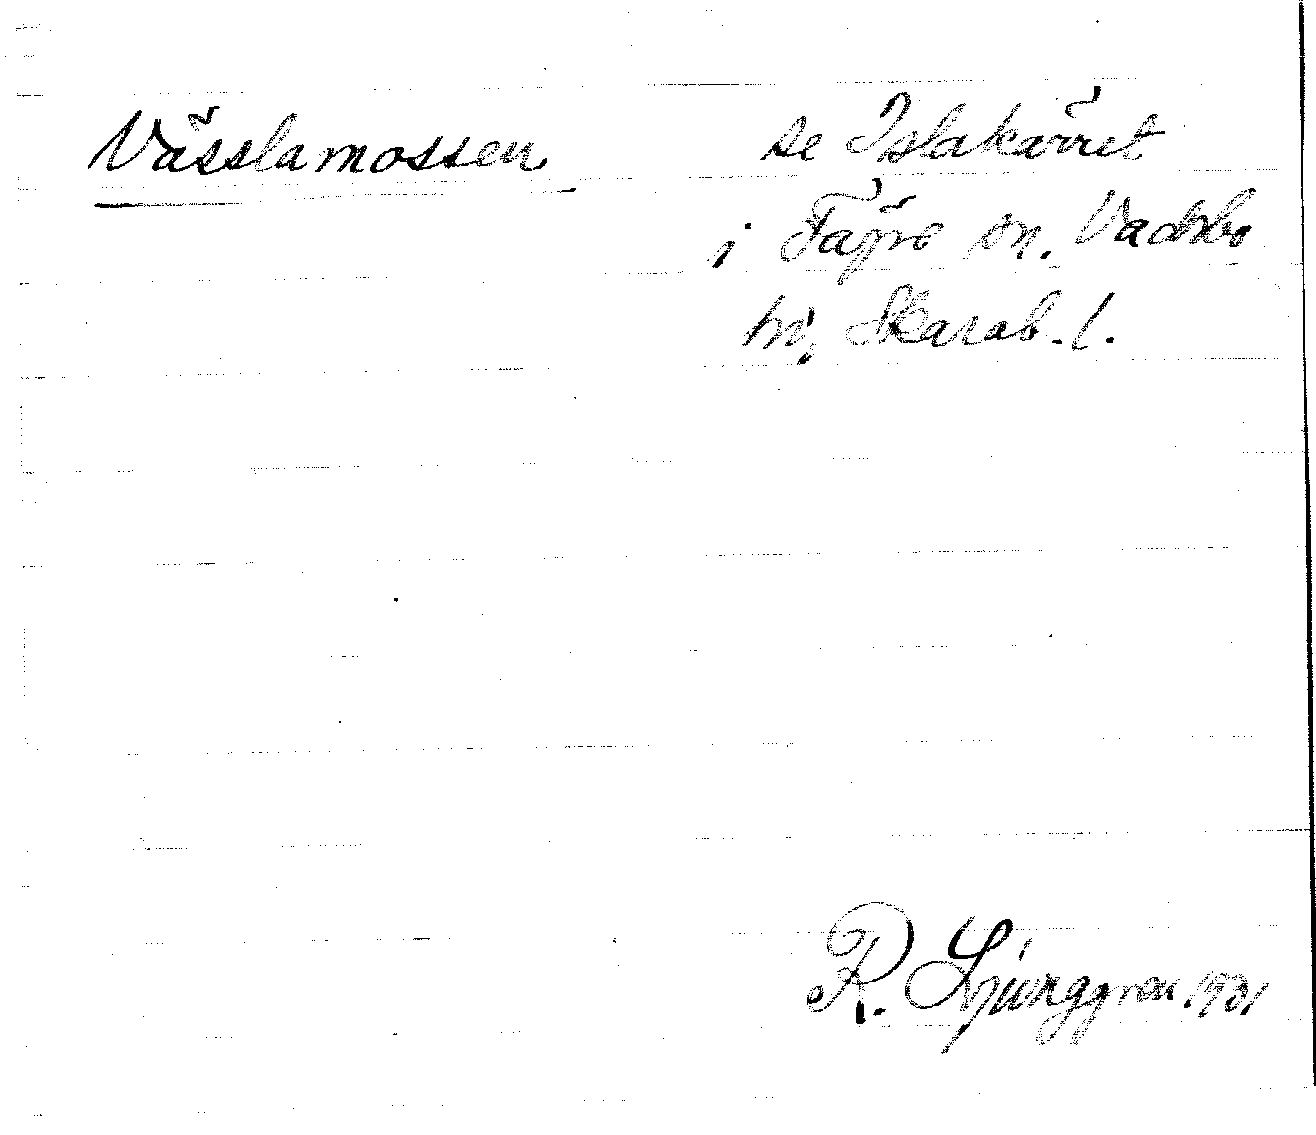 Vässlamossen
se Islakärret
i Fägre sn. Vadsbo
hd, Skarab. l.
R. Ljunggren. 1931